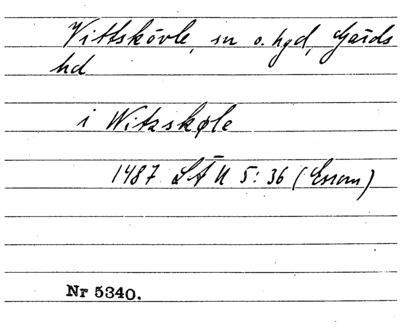 Vittskövle, sn o. hgd, Gärds
hd
i Witzskøle
1487 LÅU 5:36 (Esrom)
Nr 5340.